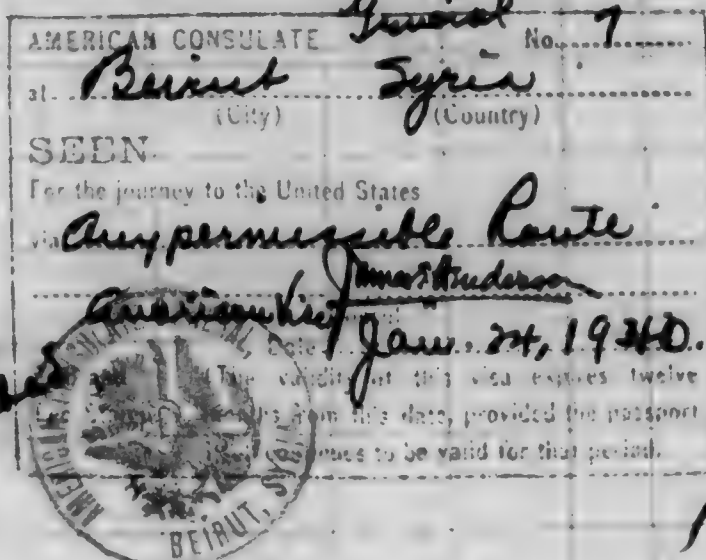 General
AMERICAN CONSULATE No. 7
at Beirut Syria
(City) (Country)
SEEN
For the journey to the United States
via Any permissible Route
James Henderson
American Vice
Jan. 24, 1940.
The validity of this visa expires twelve
from this date, provided the passport
to be valid for that period.
AMERICAN CONSULATE GENERAL, BEIRUT, SYRIA